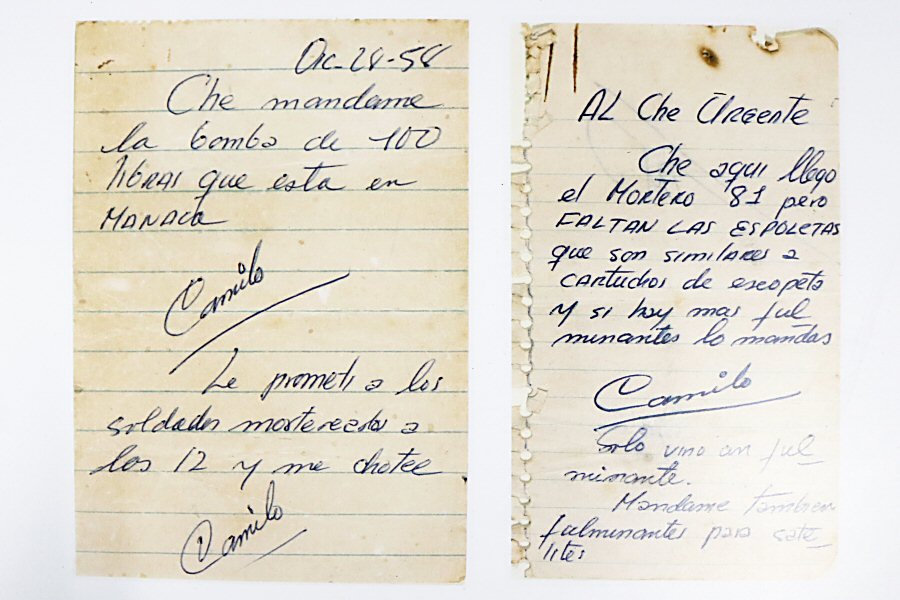 Dic-28-58
Che mandame
la bomba de 100
libras que esta en
MANACA
Camilo
Le prometi a los
soldados morterearlos a
los 12 y me chotee
Camilo
AL Che Urgente
Che aqui llego
el Mortero 81 pero
FALTAN LAS ESPOLETAS
que son similares a
cartuchos de escopeta
y si hay mas ful
minantes lo mandas
Camilo
Solo vino un ful_
minante.
Mandame tambien
fulminantes para sate_
lites